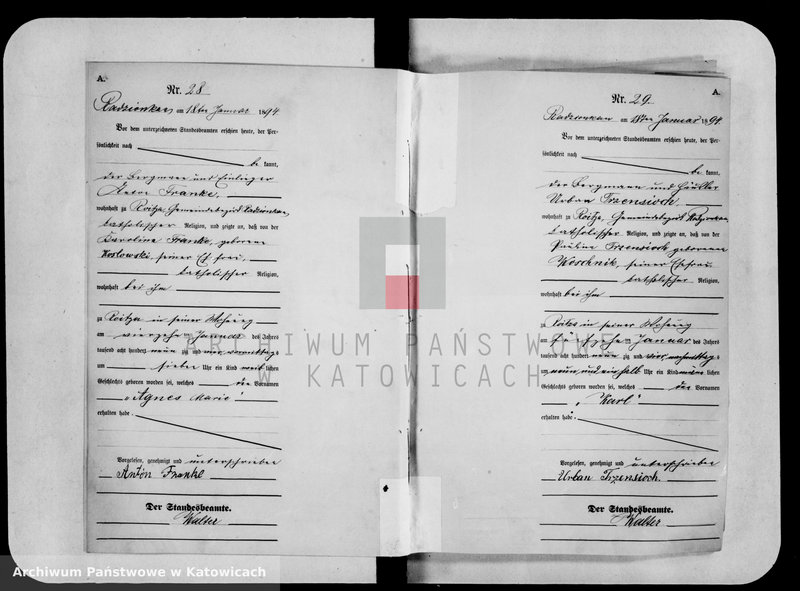 A.
Nr. 28
Radzionkau am 18ten Januar 1894
Vor dem unterzeichneten Standesbeamten erschien heute, der Per-
sönlichkeit nach
be kannt,
der Bergmann und Einlieger
Anton Franke,
wohnhaft zu Roitza, Gemeindebezirk Radzionkau,
katholischer Religion, und zeigte an, daß von der
Karoline Franke, geborene
Koslowski, seiner Ehefrau,
katholischer Religion,
wohnhaft bei ihm
zu Roitza in seiner Wohnung
am vierzehn Januar des Jahres
tausend acht hundert neun zig und vier vormittags
um sieben Uhr ein Kind weib lichen
Geschlechts geboren worden sei, welches die Vornamen
„Agnes Marie“
erhalten habe.
Vorgelesen, genehmigt und unterschrieben
Anton Franke
Der Standesbeamte.
Walter
A.
Nr. 29.
Radzionkau am 18ten Januar 1894.
Vor dem unterzeichneten Standesbeamten erschien heute, der Per-
sönlichkeit nach
be kannt,
der Bergmann und Häusler
Urban Trzensioch,
wohnhaft zu Roitza, Gemeindebezirk Radzionkau
katholischer Religion, und zeigte an, daß von der
Pauline Trzensioch geborenen
Woschnik, seiner Ehefrau,
katholischer Religion,
wohnhaft bei ihm
zu Roitza in seiner Wohnung
am fünfzehn Januar des Jahres
tausend acht hundert neun zig und vier nachmittags
um neun und ein halb Uhr ein Kind männ lichen
Geschlechts geboren worden sei, welches den Vornamen
„Karl“
erhalten habe.
Vorgelesen, genehmigt und unterschrieben
Urban Trzensioch.
Der Standesbeamte.
Walter
ARCHIWUM PAŃSTWOWE
W KATOWICACH
Archiwum Państwowe w Katowicach